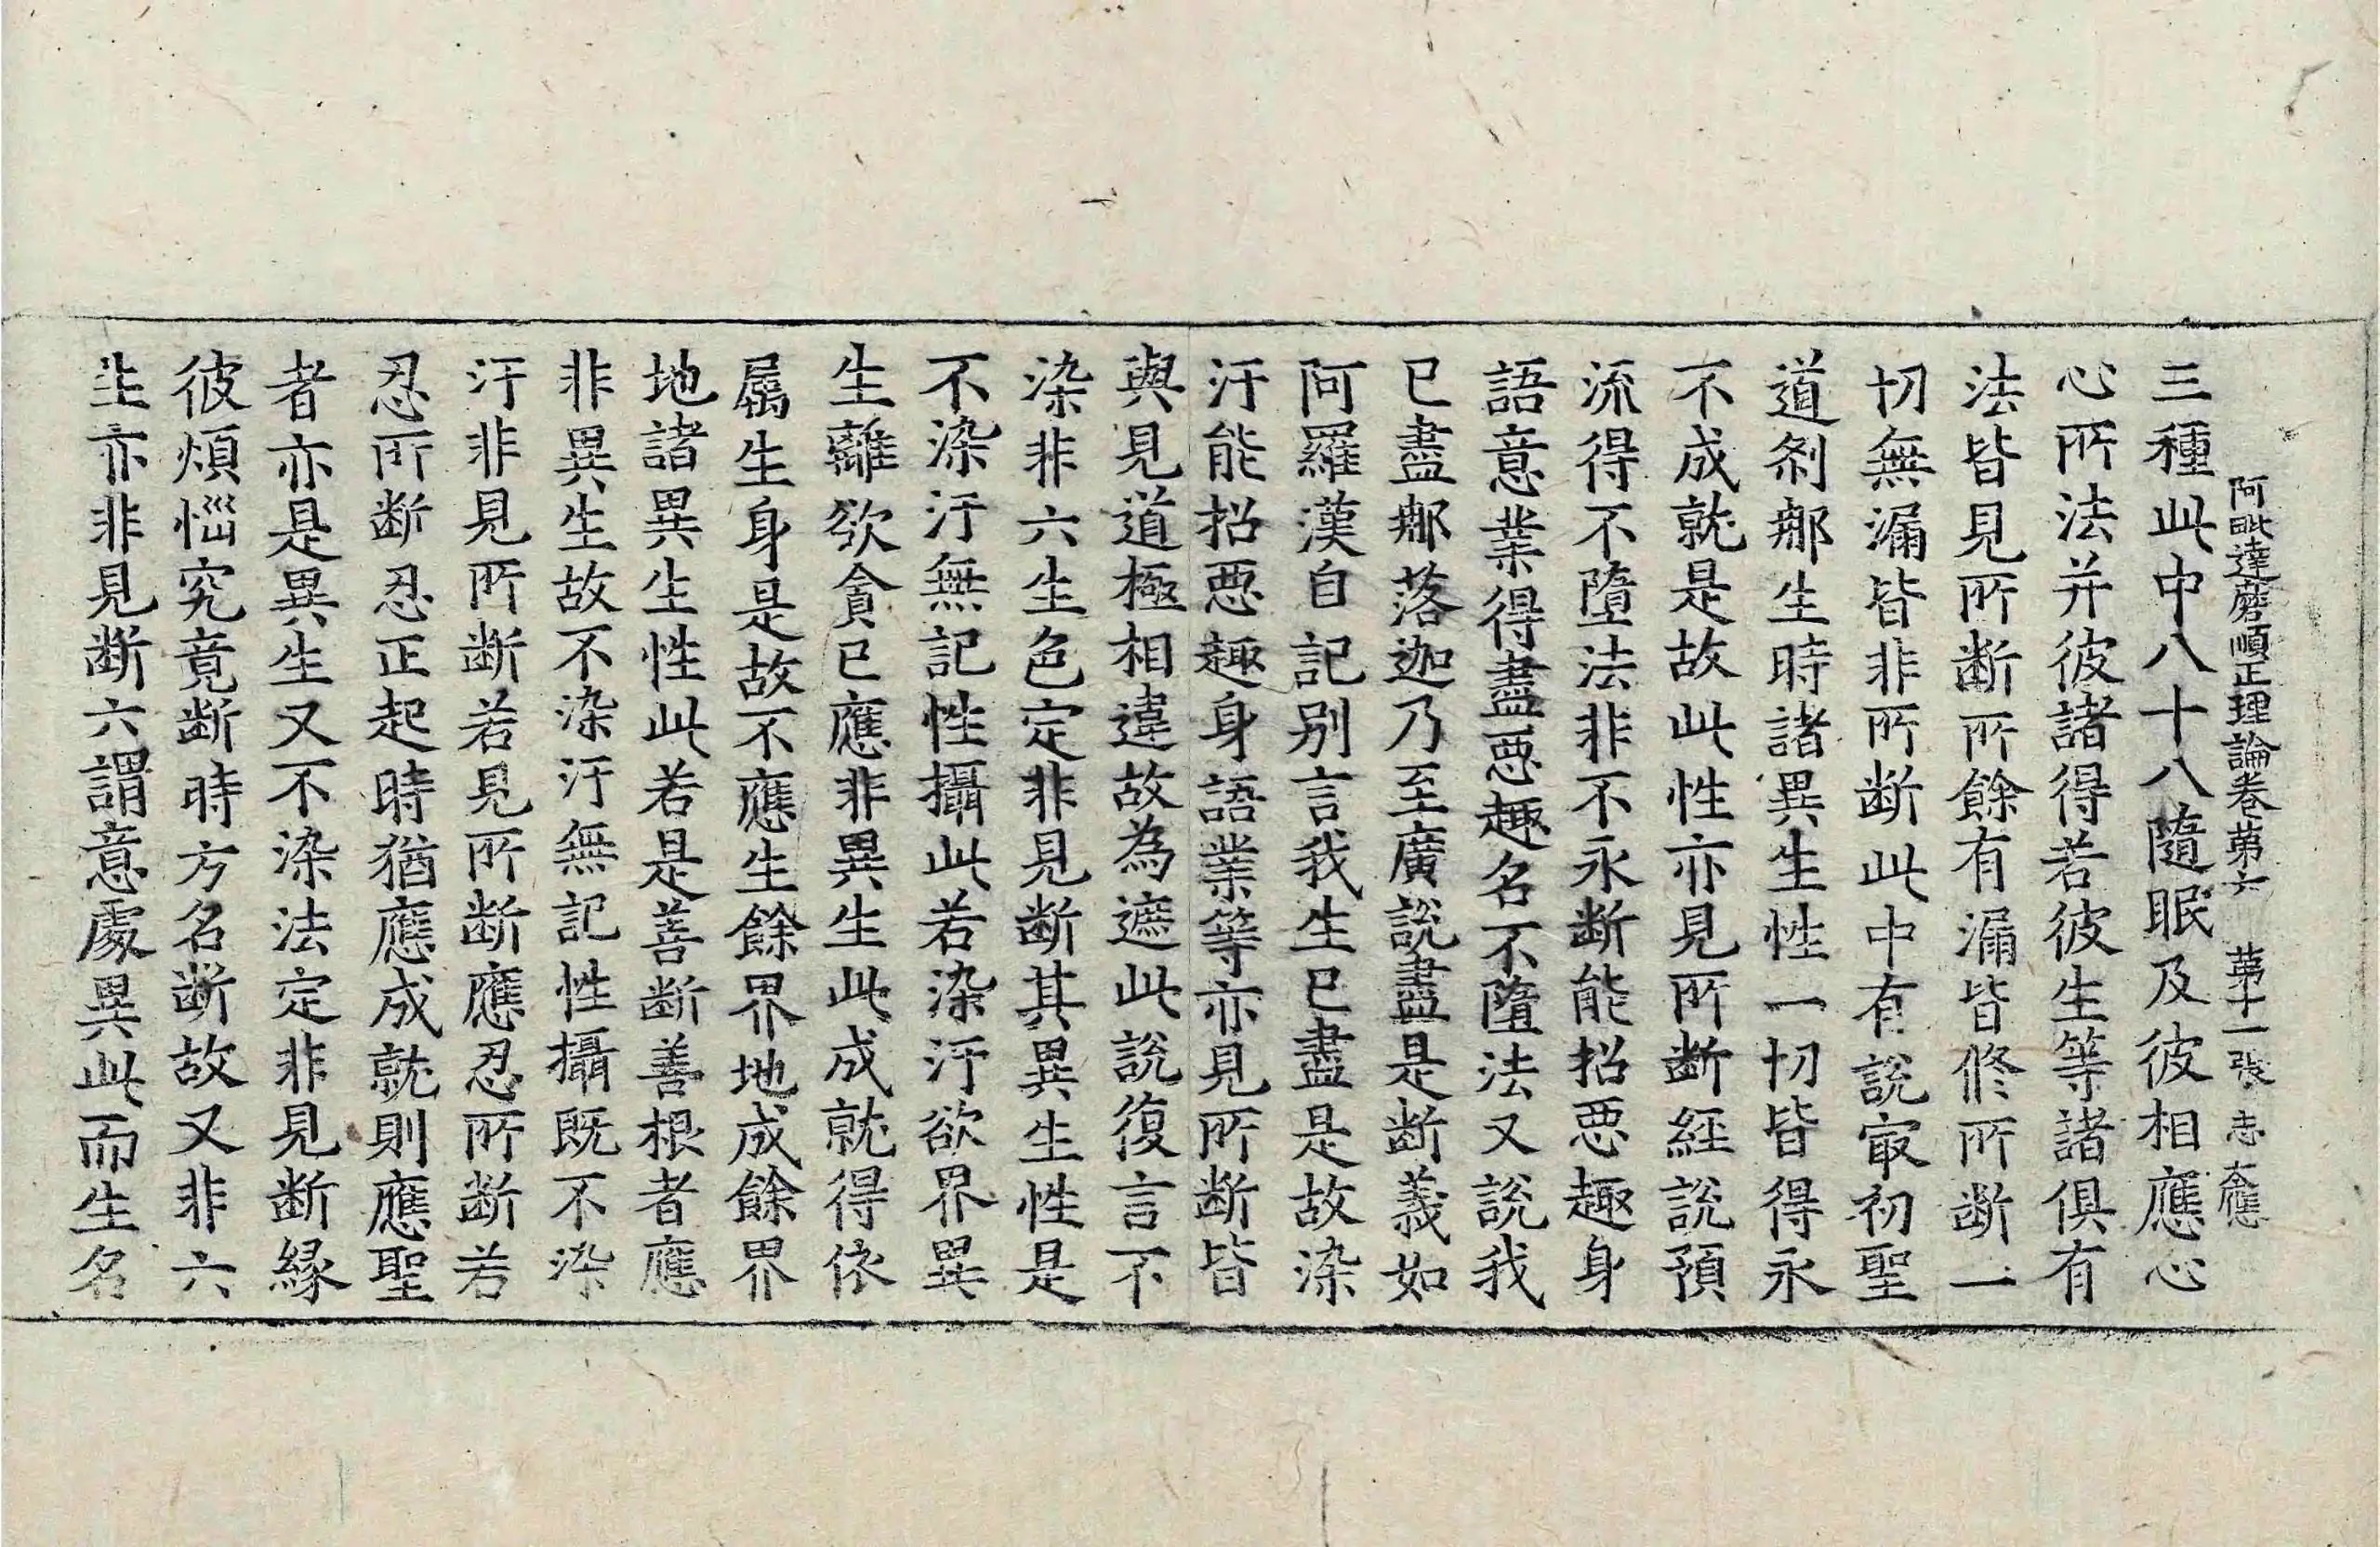 阿毗達磨順正理論卷第六 第十一張 志 大應
三種此中八十八隨眠及彼相應心
心所法并彼諸得若彼生等諸俱有
法皆見所断所餘有漏皆修所断一
切無漏皆非所断此中有說㝡初聖
道刹那生時諸異生性一切皆得永
不成就是故此性亦見所断經說預
流得不墮法非不永断能招惡趣身
語意業得盡惡趣名不墮法又說我
已盡那落迦乃至廣說盡是断義如
阿羅漢自記别言我生已盡是故染
汙能招惡趣身語業等亦見所断皆
與見道極相違故為遮此說復言不
染非六生色定非見断其異生性是
不染汙無記性攝此若染汙欲界異
生離欲貪已應非異生此成就得依
屬生身是故不應生餘界地成餘界
地諸異生性此若是善断善根者應
非異生故不染汙無記性攝既不染
汙非見所断若見所断應忍所断若
忍所断忍正起時猶應成就則應聖
者亦是異生又不染法定非見断緣
彼煩惱究竟断時方名断故又非六
生亦非見断六謂意處異此而生名